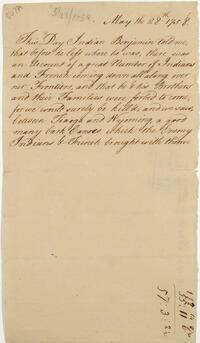 5/28/1758
May the 28th 1758
This Day Indian Benjamin told me,
that before he left where he was, there was
an Account of a great Number of Indians
and French coming down all along over
our Frontiers, and that he & his Brothers
and their Families were forced to come,
for we would surely be kill'd; and we saw
between Tiaogh and Wyoming, a good
many bark Canoes which the Enemy
Indians & French bought with them.
57:3:2½